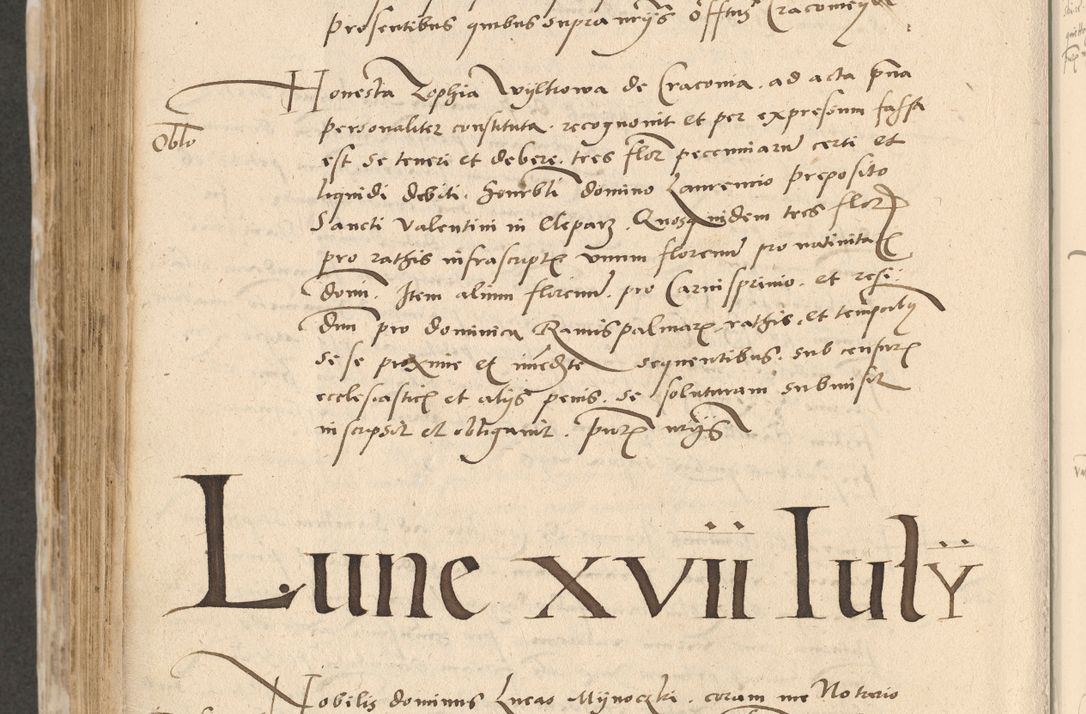 presentibus quibus supra nrÿs Offtus Cracovieñ
Honesta Zophia Wyltkowa de Cracovia . ad acta pña
Oblo
personaliter constituta . recognovit et per expressum fassa
est se teneri et debere . tres flor pecuniarum certi et
liquidi debiti . Honorbli domino Laurencio preposito
Sancti Valentini in Clepar . Quosquidem tres flor
pro rathis infrascript unum florenum pro nativita
domi . Item alium florenum . pro Carnisprivio . et resi
duu pro dominica Ramispalmar rathis . et temporibus
se se proxime et imediate sequentibus . sub censuris
ecclesiastic et alijs penis . se soluturam submisit
inscripsit et obligavit . Pntibus nrÿs
Lune xvii Iulÿ
Nobilis dominus Lucas Mÿnoczki . coram me Notario